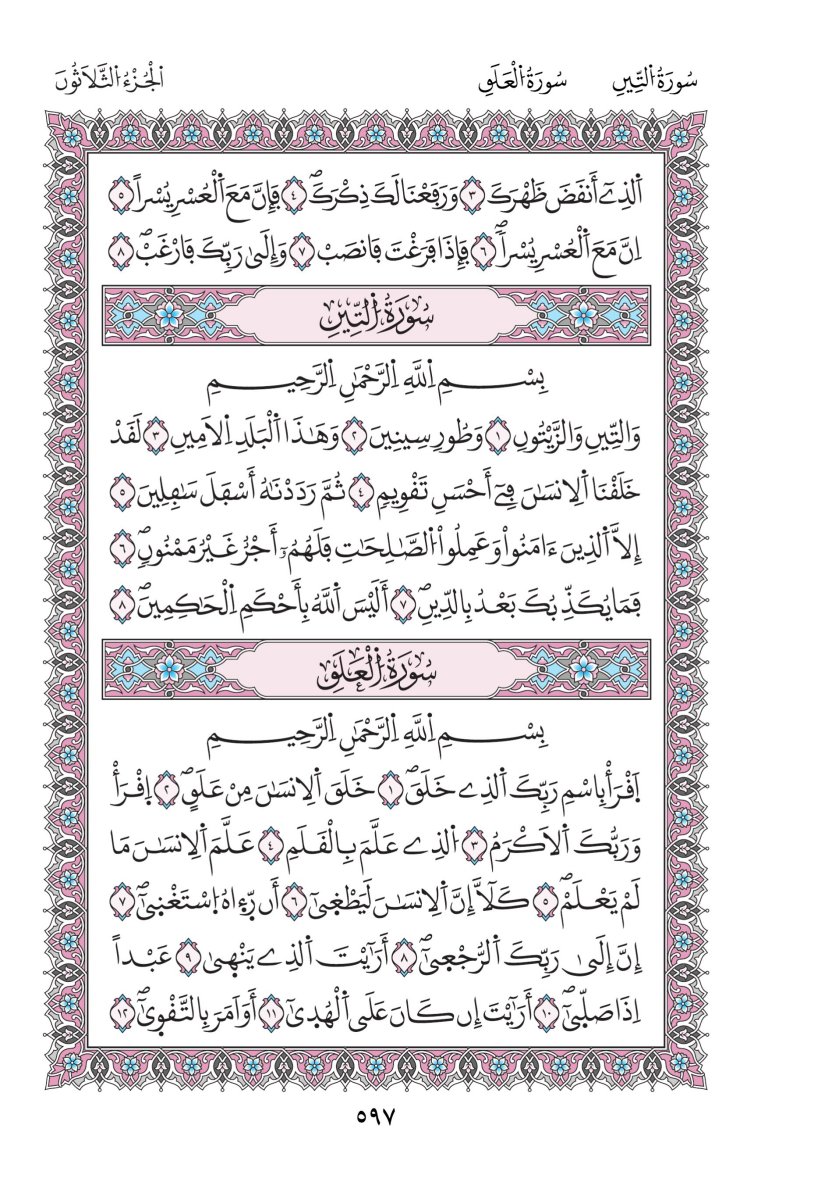 سُورَةُ اُلتِّينِ سُورَةُ اُلْعَلَقِ اَلْجُزْءُ اُلثَّلَاثُونَ
اَلذِےٓ أَنقَضَ ظَهْرَكَ ٣ وَرَفَعْنَا لَكَ ذِكْرَكَۖ ٤ فَإِنَّ مَعَ اَلْعُسْرِ يُسْراً ٥
اِنَّ مَعَ اَلْعُسْرِ يُسْراٗۖ ٦ فَإِذَا فَرَغْتَ فَانصَبْ ٧ وَإِلَىٰ رَبِّكَ فَارْغَبۖ ٨
سُورَةُ اُلتِّينِ
بِسْمِ اِللَّهِ اِلرَّحْمَٰنِ اِلرَّحِيمِ
وَالتِّينِ وَالزَّيْتُونِ ١ وَطُورِ سِينِينَ ٢ وَهَٰذَا اَلْبَلَدِ اِلَامِينِ ٣ لَقَدْ
خَلَقْنَا اَلِانسَٰنَ فِےٓ أَحْسَنِ تَقْوِيمٖ ٤ ثُمَّ رَدَدْنَٰهُ أَسْفَلَ سَٰفِلِينَ ٥
إِلَّا اَلذِينَ ءَامَنُواْ وَعَمِلُواْ اُلصَّٰلِحَٰتِ فَلَهُمُۥٓ أَجْرٌ غَيْرُ مَمْنُونٖۖ ٦
فَمَا يُكَذِّبُكَ بَعْدُ بِالدِّينِۖ ٧ أَلَيْسَ اَللَّهُ بِأَحْكَمِ اِلْحَٰكِمِينَۖ ٨
سُورَةُ اُلْعَلَقِ
بِسْمِ اِللَّهِ اِلرَّحْمَٰنِ اِلرَّحِيمِ
اِقْرَأْ بِاسْمِ رَبِّكَ اَلذِے خَلَقَۖ ١ خَلَقَ اَلِانسَٰنَ مِنْ عَلَقٍۖ ٢ اِقْرَأْ
وَرَبُّكَ اَلَاكْرَمُ ٣ اُلذِے عَلَّمَ بِالْقَلَمِ ٤ عَلَّمَ اَلِانسَٰنَ مَا
لَمْ يَعْلَمْۖ ٥ كَلَّآ إِنَّ اَلِانسَٰنَ لَيَطْغ۪ىٰٓ ٦ أَن رّ۪ء۪اهُ اُسْتَغْن۪ىٰٓۖ ٧
إِنَّ إِلَىٰ رَبِّكَ اَلرُّجْع۪ىٰٓۖ ٨ أَرَٰٓيْتَ اَلذِے يَنْه۪ىٰ ٩ عَبْداً
اِذَا صَلّ۪ىٰٓۖ ١٠ أَرَٰٓيْتَ إِن كَانَ عَلَى اَلْهُد۪ىٰٓ ١١ أَوَ اَمَرَ بِالتَّقْو۪ىٰٓۖ ١٢
٥٩٧